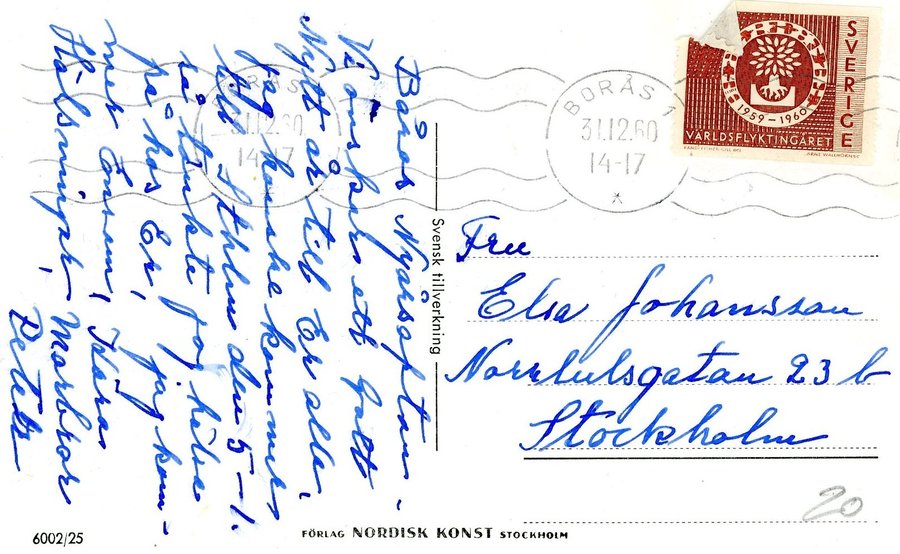 Borås Nyårsafton -
Vi önskar ett Gott
Nytt år till Er alla,
Jag kanske kommer
till Sthlm den 5-1.
så tänkte jag hälsa
på hos Er, jag kom-
mer Ensam, Kära
Hälsningar, Morbror
Svensk tillverkning
BORÅS 1
31.12.60
14-17
BORÅS 1
31.12.60
14-17
SVERIGE
1959-1960
VÄRLDSFLYKTINGÅRET
Fru
Elsa Johansson
Norrtulsgatan 23 b
Stockholm
20
6002/25
FÖRLAG NORDISK KONST STOCKHOLM